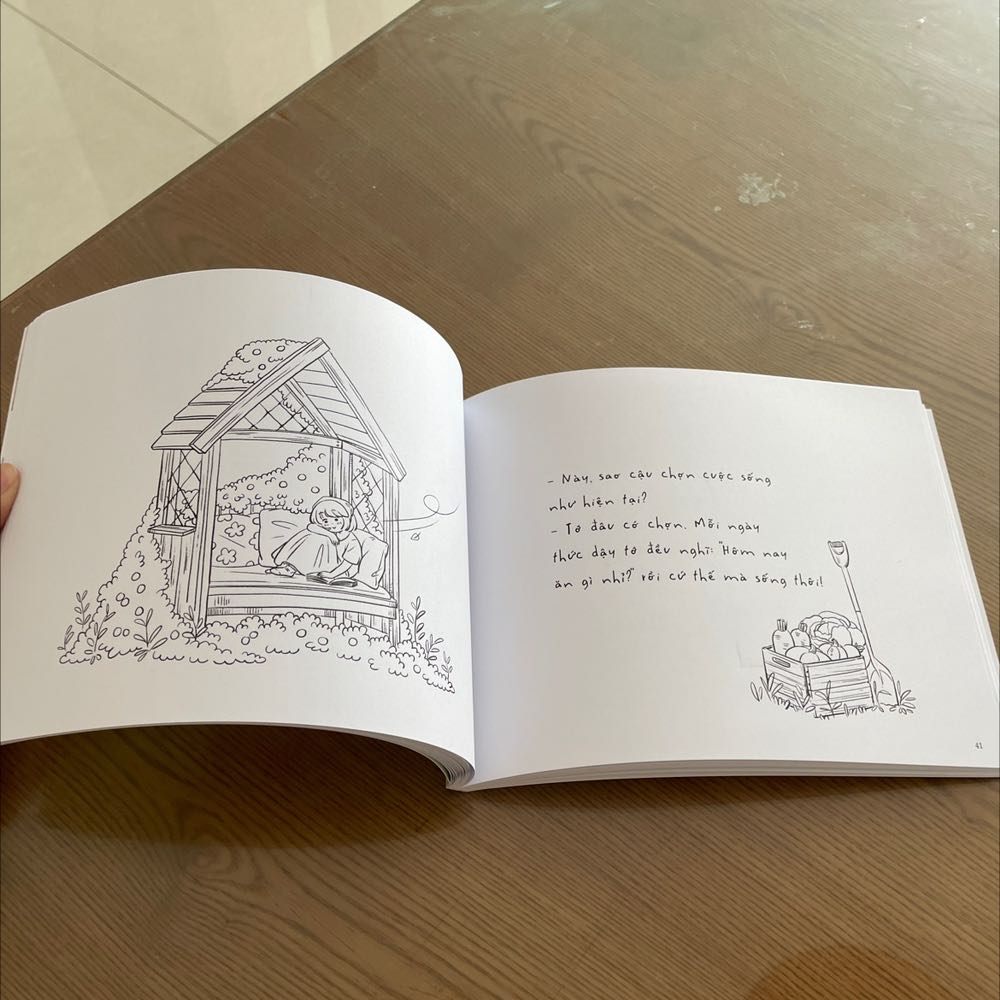 - Này, sao cậu chọn cuộc sống
như hiện tại?
- Tớ đâu có chọn. Mỗi ngày
thức dậy tớ đều nghĩ: "Hôm nay
ăn gì nhỉ?" rồi cứ thế mà sống thôi!
41